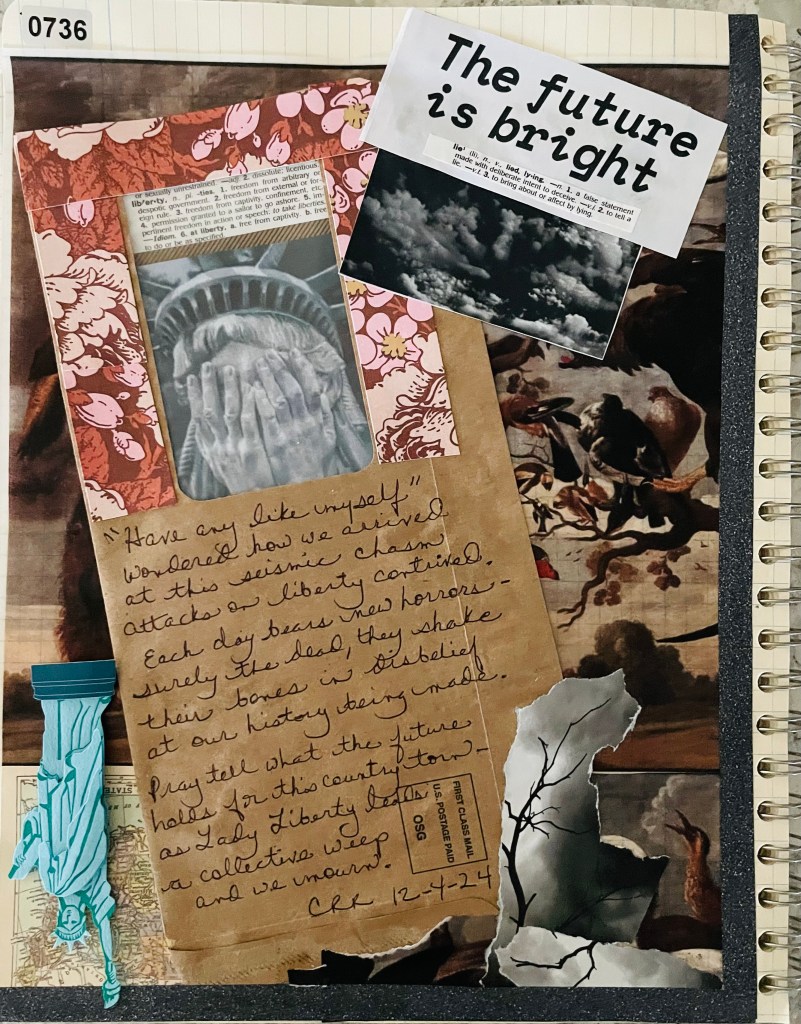 0736
The future
is bright
lie¹ (lī), n., v., lied, ly·ing. —n. 1. a false statement
made with deliberate intent to deceive. —v.i. 2. to tell a
lie. —v.t. 3. to bring about or affect by lying.
or sexually unrestrained. 2. dissolute; licentious.
lib·er·ty, n. pl. -ties. 1. freedom from arbitrary or
despotic government. 2. freedom from external or for-
eign rule. 3. freedom from captivity, confinement, etc.
4. permission granted to a sailor to go ashore. 5. im-
pertinent freedom in action or speech: to take liberties.
—Idiom. 6. at liberty, a. free from captivity. b. free
to do or be as specified.
"Have any like myself"
wondered how we arrived
at this seismic chasm
attacks on liberty contrived.
Each day bears new horrors –
surely the dead, they shake
their bones in disbelief
at our history being made.
Pray tell what the future
holds for this country torn –
as Lady Liberty leads
a collective weep
and we mourn.
CRR 12-4-24
FIRST CLASS MAIL
U.S. POSTAGE PAID
OSG
STATES